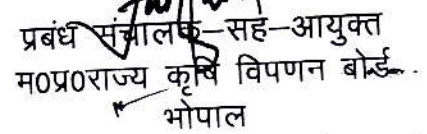 प्रबंध संचालक–सह–आयुक्त
म०प्र०राज्य कृषि विपणन बोर्ड
भोपाल